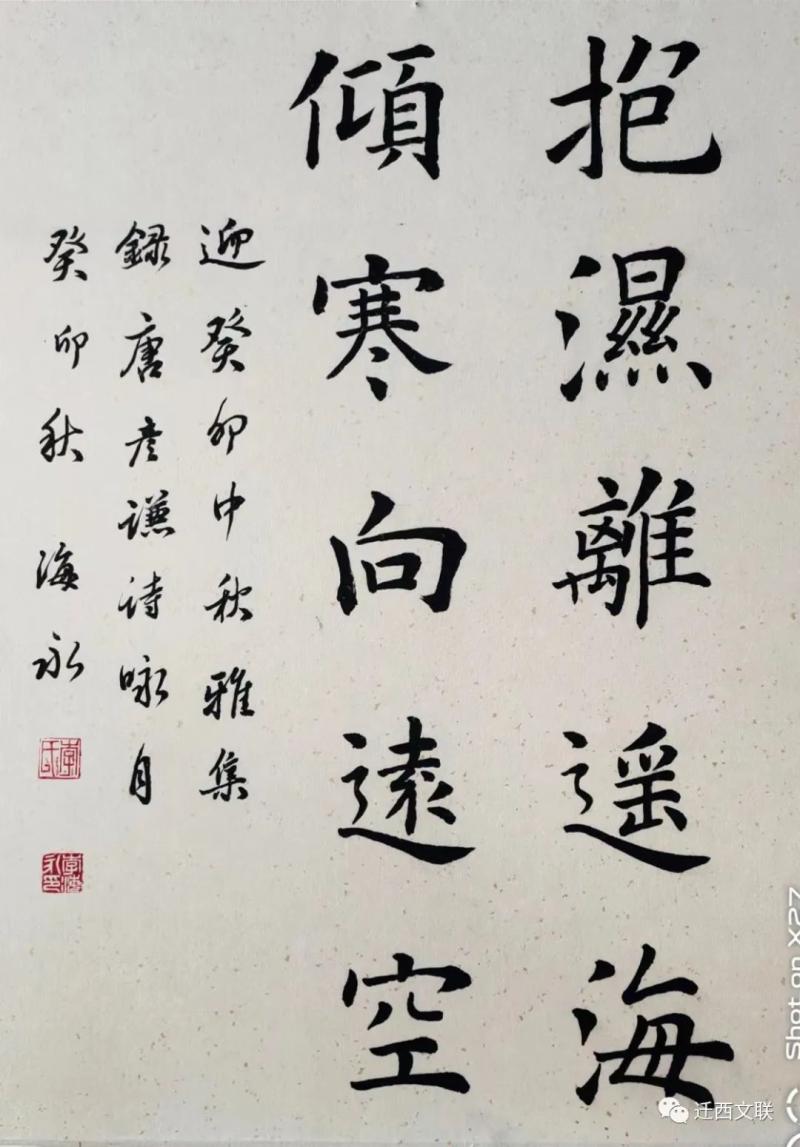 抱濕離遥海
傾寒向遠空
迎癸卯中秋雅集
録唐彦谦诗咏月
癸卯秋 海永
李氏
李海永印
Shot on X27
迁西文联